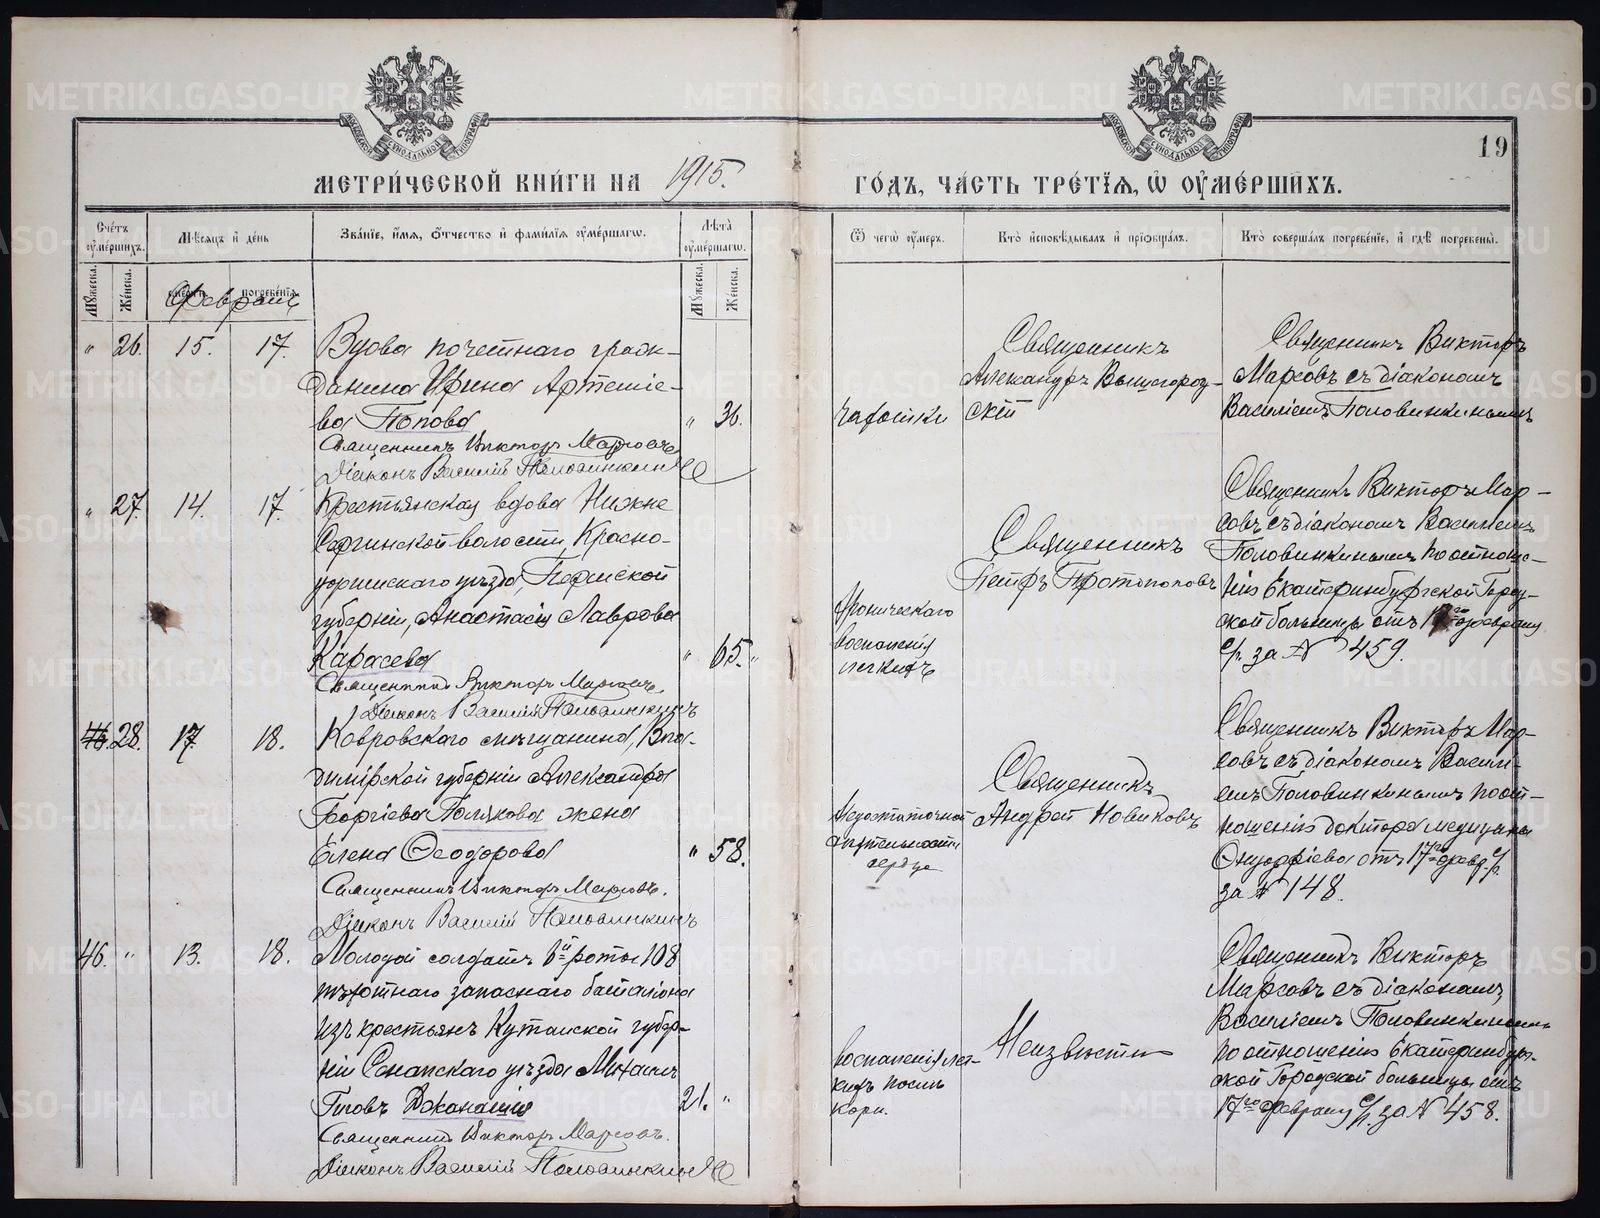 19
МЕТРИ́ЧЕСКОЙ КНИ́ГИ НА 1915.
ГО́ДЪ, ЧА́СТЬ ТРЕ́ТІѦ, Ѡ ОУ҆МЕ́РШИХЪ.
Сче́тъ оу҆ме́ршихъ.
Мѣ́сяцъ и҆ де́нь
Зва́нїе, и҆́мѧ, ѻ҆́тчество и҆ фами́лїѧ оу҆ме́ршагѡ.
Лѣ́та оу҆ме́ршагѡ.
Ѿ чегѡ̀ оу҆́меръ.
Кто̀ и҆сповѣ́дывалъ и҆ прїѡбща́лъ.
Кто̀ соверша́лъ погребе́нїе, и҆ гдѣ̀ погребены̀.
Мꙋ́жеска.
Же́нска.
погребе́нїѧ.
Мꙋ́жеска.
Же́нска.
Февраль
" 26. 15. 17.
Вдова почетнаго граж-
данина Ирина Артемiе-
ва Попова
" 36.
Священникъ Викторъ Марсовъ
Дiаконъ Василiй Половинкинъ
чахотки
Священникъ
Александръ Вышегород-
скiй
Священникъ Викторъ
Марсовъ съ дiакономъ
Василiемъ Половинкинымъ
" 27. 14. 17.
Крестьянская вдова Нижне
Сергинской волости, Красно-
уфимскаго уѣзда, Пермской
губернiи, Анастасiя Лаврова
Карасева
" 65. "
Священникъ Викторъ Марсовъ
Дiаконъ Василiй Половинкинъ
Хроническаго
воспаленiя
легкихъ
Священникъ
Петръ Протопоповъ
Священникъ Викторъ Мар-
совъ съ дiакономъ Василiемъ
Половинкинымъ по отноше-
нiю Екатеринбургской Город-
ской больницы отъ 17го февраля
с/г. за № 459.
46. 28. 17 18.
Ковровскаго мѣщанина, Вла-
димiрской губернiи Александра
Георгiева Полякова жена
Елена Ѳеодорова
" 58.
Священникъ Викторъ Марсовъ.
Дiаконъ Василiй Половинкинъ
Недостаточной
дѣятельности
сердца
Священникъ
Андрей Новиковъ
Священникъ Викторъ Мар-
совъ съ дiакономъ Васили-
емъ Половинкинымъ по от-
ношенiю доктора медицины
Онуфрiева отъ 17го февр. с/г.
за № 148.
46. " 13. 18.
Молодой солдатъ 6й роты 108
пѣхотнаго запаснаго баталiона
изъ крестьянъ Кутаиской губер-
нiи Сенакскаго уѣзда Михаилъ
21. "
Священникъ Викторъ Марсовъ.
Дiаконъ Василiй Половинкинъ
воспаленiя лег-
кихъ послѣ
кори.
Неизвѣстно
Священникъ Викторъ
Марсовъ съ дiакономъ
Василiемъ Половинкинымъ
по отношенiю Екатеринбург-
ской Городской больницы отъ
17го февраля с/г. за № 458.
METRIKI.GASO-URAL.RU